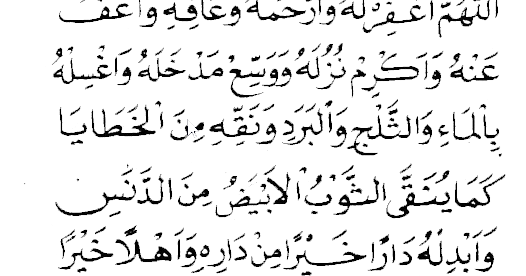 اللّٰهُمَّ اغْفِرْ لَهُ وَارْحَمْهُ وَعَافِهِ وَاعْفُ
عَنْهُ وَاَكْرِمْ نُزُلَهُ وَوَسِّعْ مَدْخَلَهُ وَاغْسِلْهُ
بِالْمَاءِ وَالثَّلْجِ وَالْبَرَدِ وَنَقِّهِ مِنَ الْخَطَايَا
كَمَا يُنَقَّى الثَّوْبُ الْاَبْيَضُ مِنَ الدَّنَسِ
وَاَبْدِلْهُ دَارًا خَيْرًا مِنْ دَارِهِ وَاَهْلًا خَيْرًا